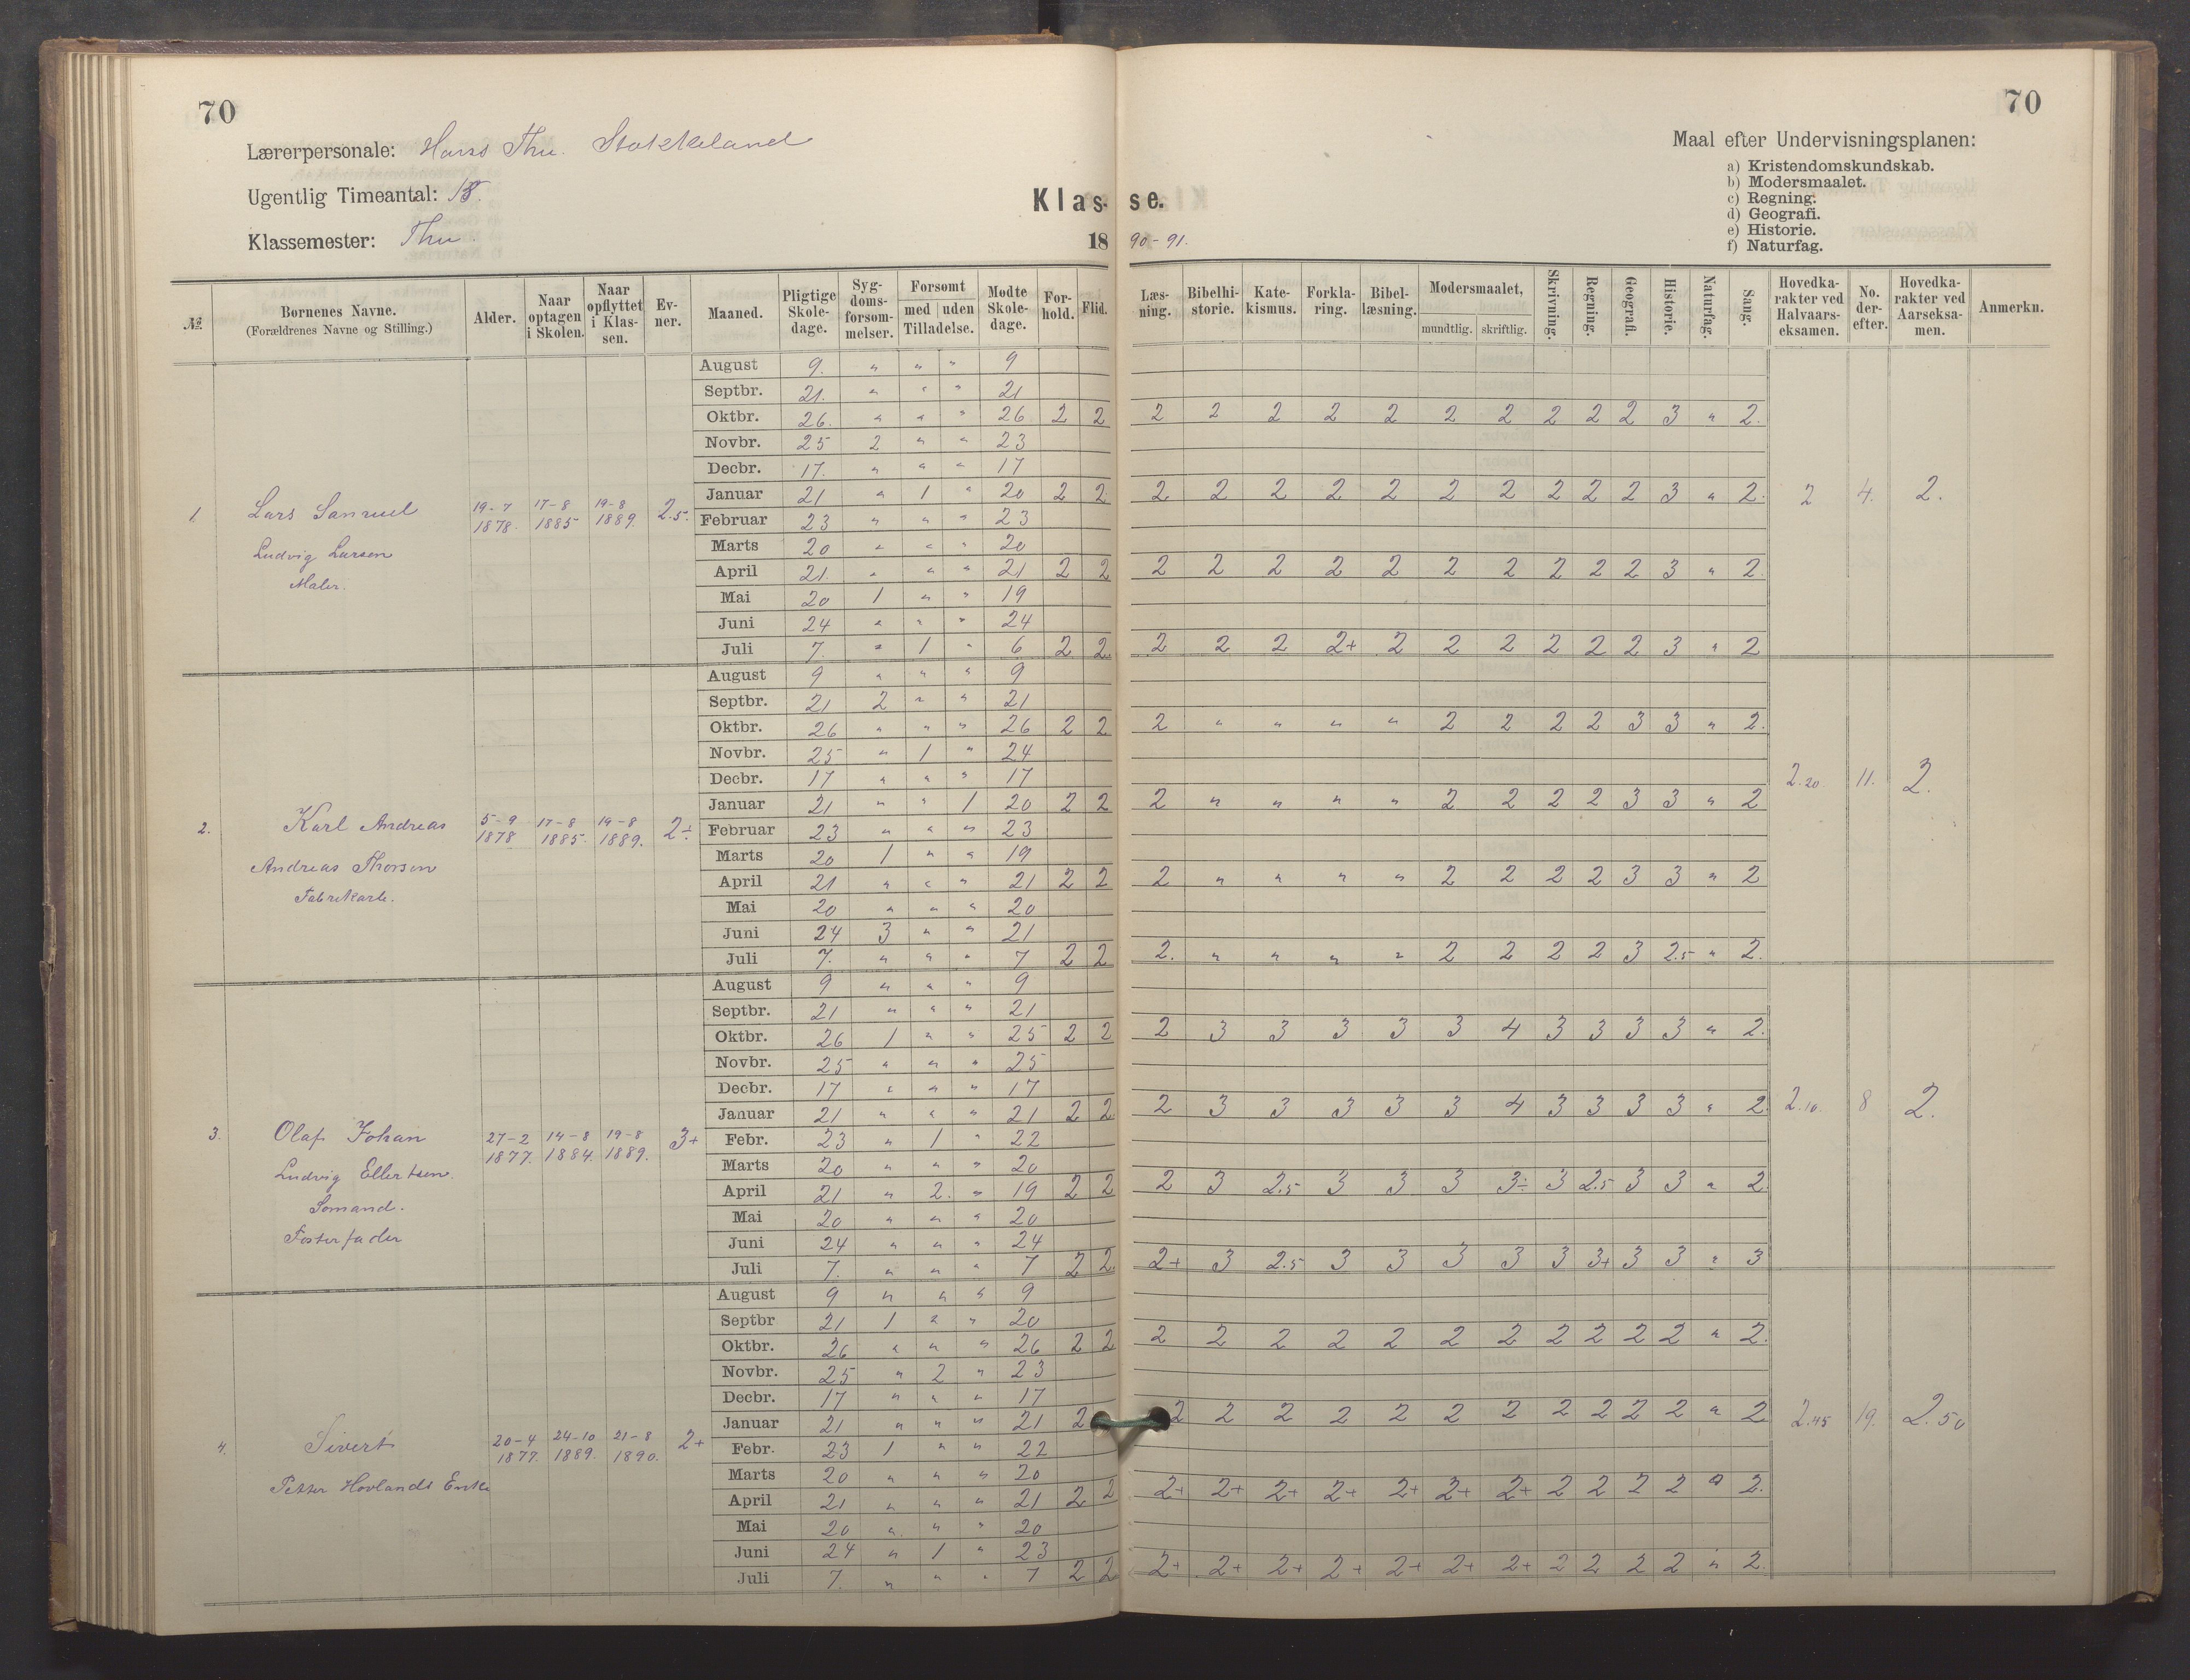 70
70
Lærerpersonale: Hans Thu. Stokkeland
Ugentlig Timeantal:
Klassemester: Thu.
Klas- se.
18 90-91.
Maal efter Undervisningsplanen:
a) Kristendomskundskab.
b) Modersmaalet.
c) Regning.
d) Geografi.
e) Historie.
f) Naturfag.
№ Børnenes Navne. (Forældrenes Navne og Stilling.) Alder. Naar optagen i Skolen. Naar opflyttet i Klassen. Evner. Maaned. Pligtige Skoledage. Sygdomsforsømmelser. Forsømt med uden Tilladelse. Mødte Skoledage. Forhold. Flid. Læsning. Bibelhistorie. Katekismus. Forklaring. Bibellæsning. Modersmaalet, mundtlig. skriftlig. Skrivning. Regning. Geografi. Historie. Naturfag. Sang. Hovedkarakter ved Halvaarseksamen. No. derefter. Hovedkarakter ved Aarseksamen. Anmerkn.
1. Lars Samuel 19-7 1878. 17-8 1885 19-8 1889. 2.5.
Ludvig Larsen
Maler.
August 9. " " " 9
Septbr. 21. " " " 21
Oktbr. 26. " " " 26 2 2 2 2 2 2 2 2 2 2 2 2 3 " 2.
Novbr. 25 2 " " 23
Decbr. 17. " " " 17
Januar 21 " 1 " 20 2 2 2 2 2 2 2 2 2 2 2 2 3 " 2. 2 4. 2.
Februar 23 " " " 23
Marts 20 " " " 20
April 21. " " " 21 2 2 2 2 2 2 2 2 2 2 2 2 3 " 2.
Mai 20 1 " " 19
Juni 24 " " " 24
Juli 7. " 1 " 6 2 2 2 2 2 2+ 2 2 2 2 2 2 3 " 2
2. Karl Andreas 5-9 1878 17-8 1885. 19-8 1889. 2÷
Andreas Thorsen
Fabrikarb.
August 9 " " " 9
Septbr. 21 2 " " 21
Oktbr. 26 " " " 26 2 2 2 " " " " 2 2 2 2 3 3 " 2.
Novbr. 25 " 1 " 24
Decbr. 17 " " " 17 2.20. 11. 2.
Januar 21 " " 1 20 2 2 2 " " " " 2 2 2 2 3 3 " 2
Februar 23 " " " 23
Marts 20 1 " " 19
April 21 " " " 21 2 2 2 " " " " 2 2 2 2 3 3 " 2
Mai 20 " " " 20
Juni 24 3 " " 21
Juli 7. " " " 7 2 2 2. " " " " 2 2 2 2 3 2.5 " 2.
3. Olaf Johan 27-2 1877. 14-8 1884. 19-8 1889. 3+
Ludvig Ellertsen.
Sømand.
Fosterfader
August 9 " " " 9
Septbr. 21 " " " 21
Oktbr. 26 1 " " 25 2 2 2 3 3 3 3 3 4 3 3 3 3 " 2.
Novbr. 25 " " " 25
Decbr. 17 " " " 17
Januar 21 " " " 21 2 2. 2 3 3 3 3 3 4 3 3 3 3 " 2. 2.10. 8 2.
Febr. 23 " 1 " 22
Marts 20 " " " 20
April 21 " 2. " 19 2 2 2 3 2.5 3 3 3 3÷ 3 2.5 3 3 " 2.
Mai 20 " " " 20
Juni 24 " " " 24
Juli 7. " " " 7 2 2. 2+ 3 2.5 3 3 3 3 3 3+ 3 3 " 3
4. Sivert 20-4 1877. 24-10 1889. 21-8 1890. 2+
Petter Hovlands Enke
August 9 " " " 9
Septbr 21 1 " " 20
Oktbr. 26 " " " 26 2 2 2 2 2 2 2 2 2 2 2 2 2 " 2.
Novbr. 25 " 2 " 23
Decbr. 17 " " " 17
Januar 21 " " " 21 2 2 2 2 2 2 2 2 2 2 2 2 " 2 2.45 19. 2.50
Febr. 23 1 " " 22
Marts 20 " " " 20
April 21 " " " 21 2 2 2+ 2+ 2+ 2+ 2+ 2+ 2+ 2 2 2 2 " 2.
Mai 20 " " " 20
Juni 24 " 1 " 23
Juli 7. " " " 7 2 2 2+ 2+ 2+ 2+ 2+ 2+ 2+ 2 2 2 2 " 2.